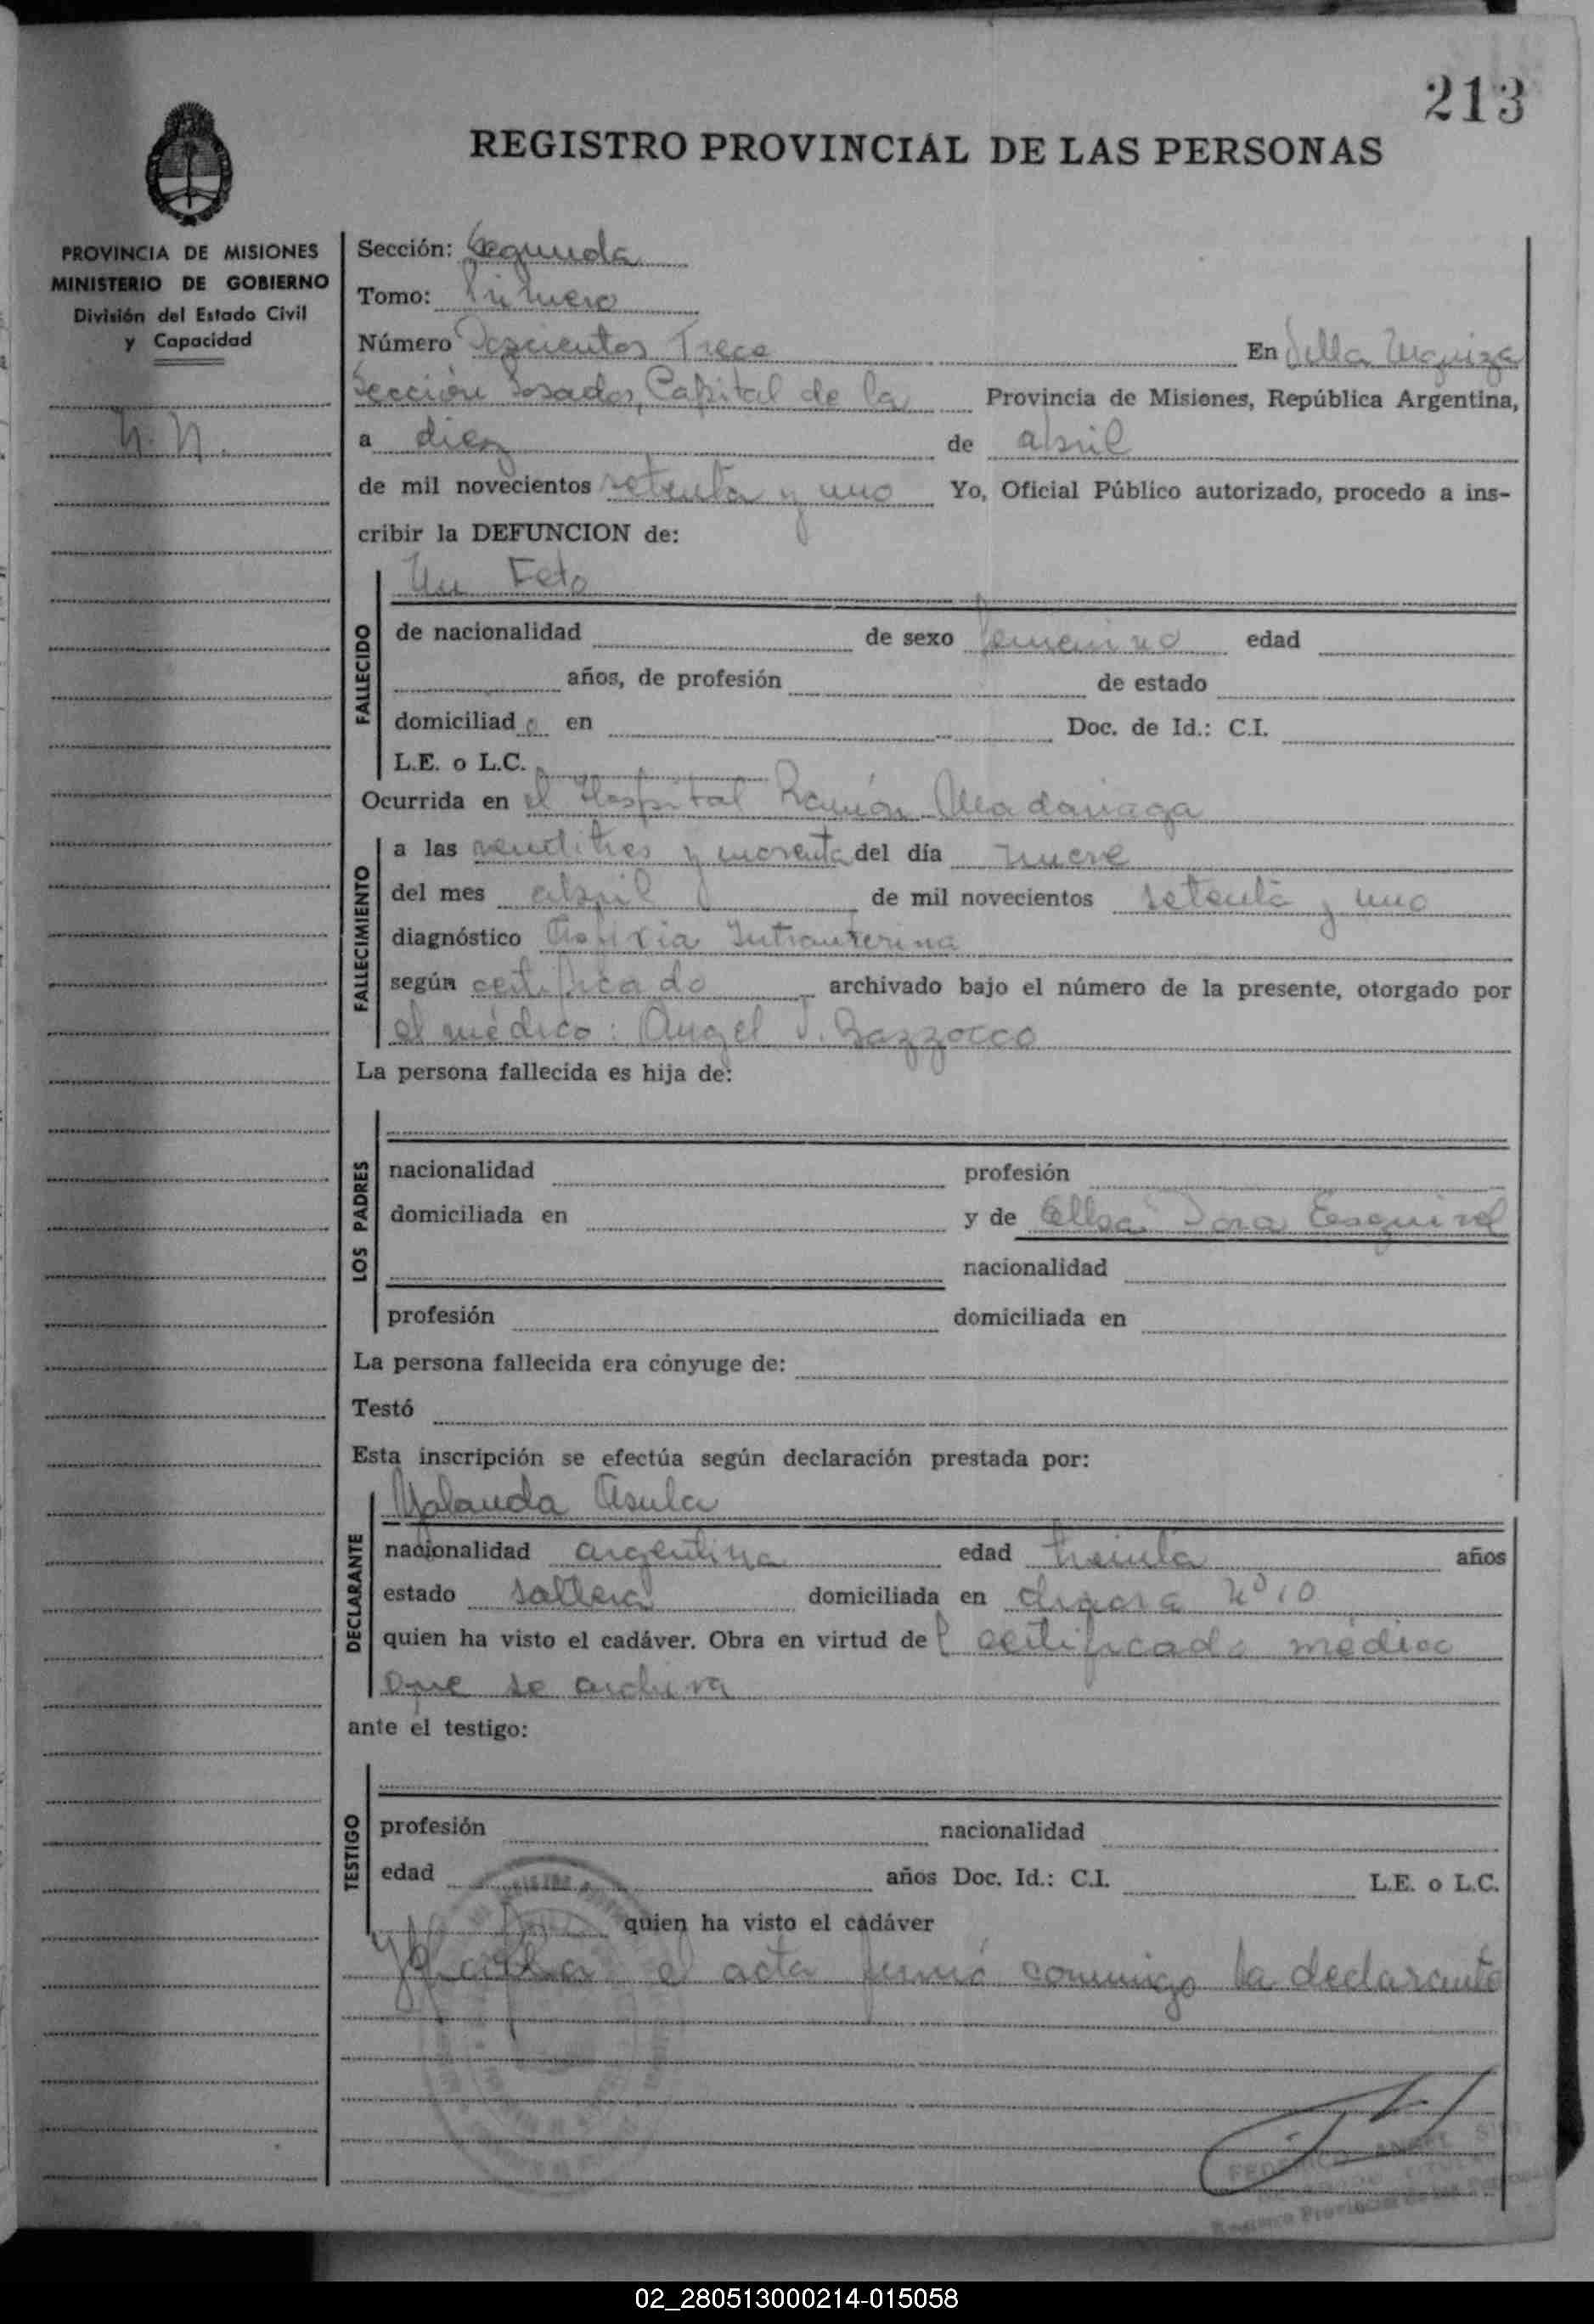 213
REGISTRO PROVINCIAL DE LAS PERSONAS
PROVINCIA DE MISIONES
MINISTERIO DE GOBIERNO
División del Estado Civil
y Capacidad
N. N.
Sección: Segunda
Tomo: Primero
Número Doscientos Trece En Villa Urquiza
Sección Posadas, Capital de la Provincia de Misiones, República Argentina,
a diez de abril
de mil novecientos setenta y uno Yo, Oficial Público autorizado, procedo a ins-
cribir la DEFUNCION de:
Un Feto
FALLECIDO
de nacionalidad de sexo femenino edad
años, de profesión de estado
domiciliad en Doc. de Id.: C.I.
L.E. o L.C.
Ocurrida en el Hospital Ramón Madariaga
FALLECIMIENTO
a las veintitres y cuarenta del día nueve
del mes abril de mil novecientos setenta y uno
diagnóstico Asfixia Intrauterina
según certificado archivado bajo el número de la presente, otorgado por
el médico: Angel J. Bazzocco
La persona fallecida es hija de:
LOS PADRES
nacionalidad profesión
domiciliada en y de Dora Esquivel
nacionalidad
profesión domiciliada en
La persona fallecida era cónyuge de:
Testó
Esta inscripción se efectúa según declaración prestada por:
Yolanda Asula
DECLARANTE
nacionalidad argentina edad treinta años
estado soltera domiciliada en chacra Nº 10
quien ha visto el cadáver. Obra en virtud del certificado médico
que se archiva
ante el testigo:
TESTIGO
profesión nacionalidad
edad años Doc. Id.: C.I. L.E. o L.C.
quien ha visto el cadáver
el acta firmó conmigo la declarante
02_280513000214-015058